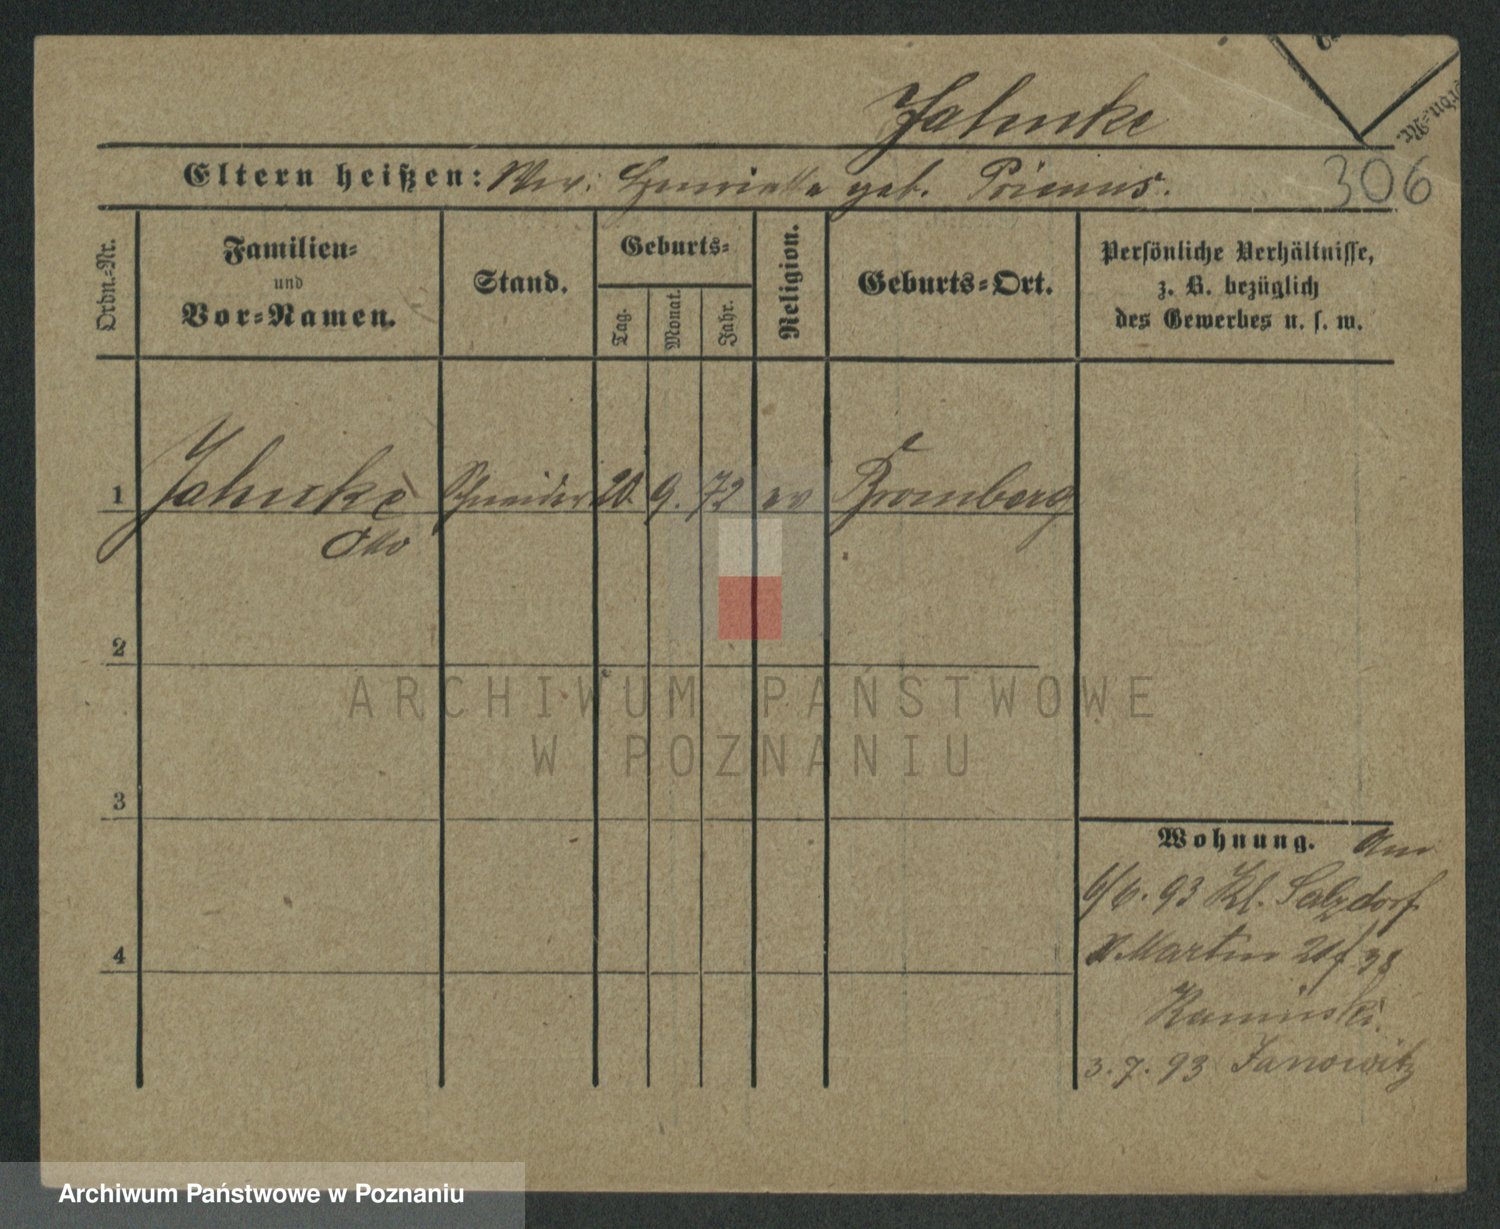 Jahnke
Ordn.-Nr.
Eltern heißen: Wwe. Henriette geb. Primus.
306
Ordn.-Nr.
Familien-
und
Vor-Namen.
Stand.
Geburts-
Tag.
Monat.
Jahr.
Religion.
Geburts-Ort.
Persönliche Verhältnisse,
z. B. bezüglich
des Gewerbes u. s. w.
1 Jahnke Schneider 20. 9. 72 ev Bromberg
Otto
2
ARCHIWUM PAŃSTWOWE
W POZNANIU
3
Wohnung. Am
6/6. 93 Kl. Salzdorf
Martin
4
Kaminski.
3. 7. 93 Janowitz
Archiwum Państwowe w Poznaniu